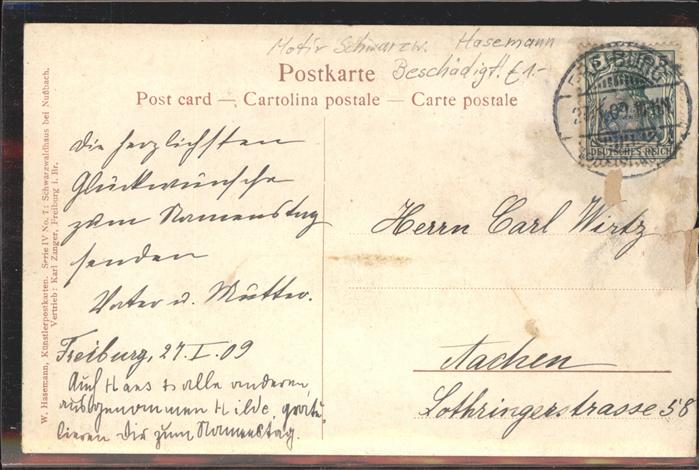 Motiv Schwarzw. Hasemann
Beschädigt. £1.-
Postkarte
Post card — Cartolina postale — Carte postale
W. Hasemann, Künstlerpostkarten. Serie IV No. 7: Schwarzwaldhaus bei Nußbach.
Vertrieb: Karl Zanger, Freiburg i. Br.
die herzlichsten
Glückwünsche
zum Namenstag
senden
Vater u. Mutter.
Freiburg, 27. I. 09
Auch Hans & alle anderen,
ausgenommen Hilde, gratu-
lieren Dir zum Namenstag.
FREIBURG
DEUTSCHES REICH
Herrn Carl Wirtz
Aachen
Lothringerstrasse 58